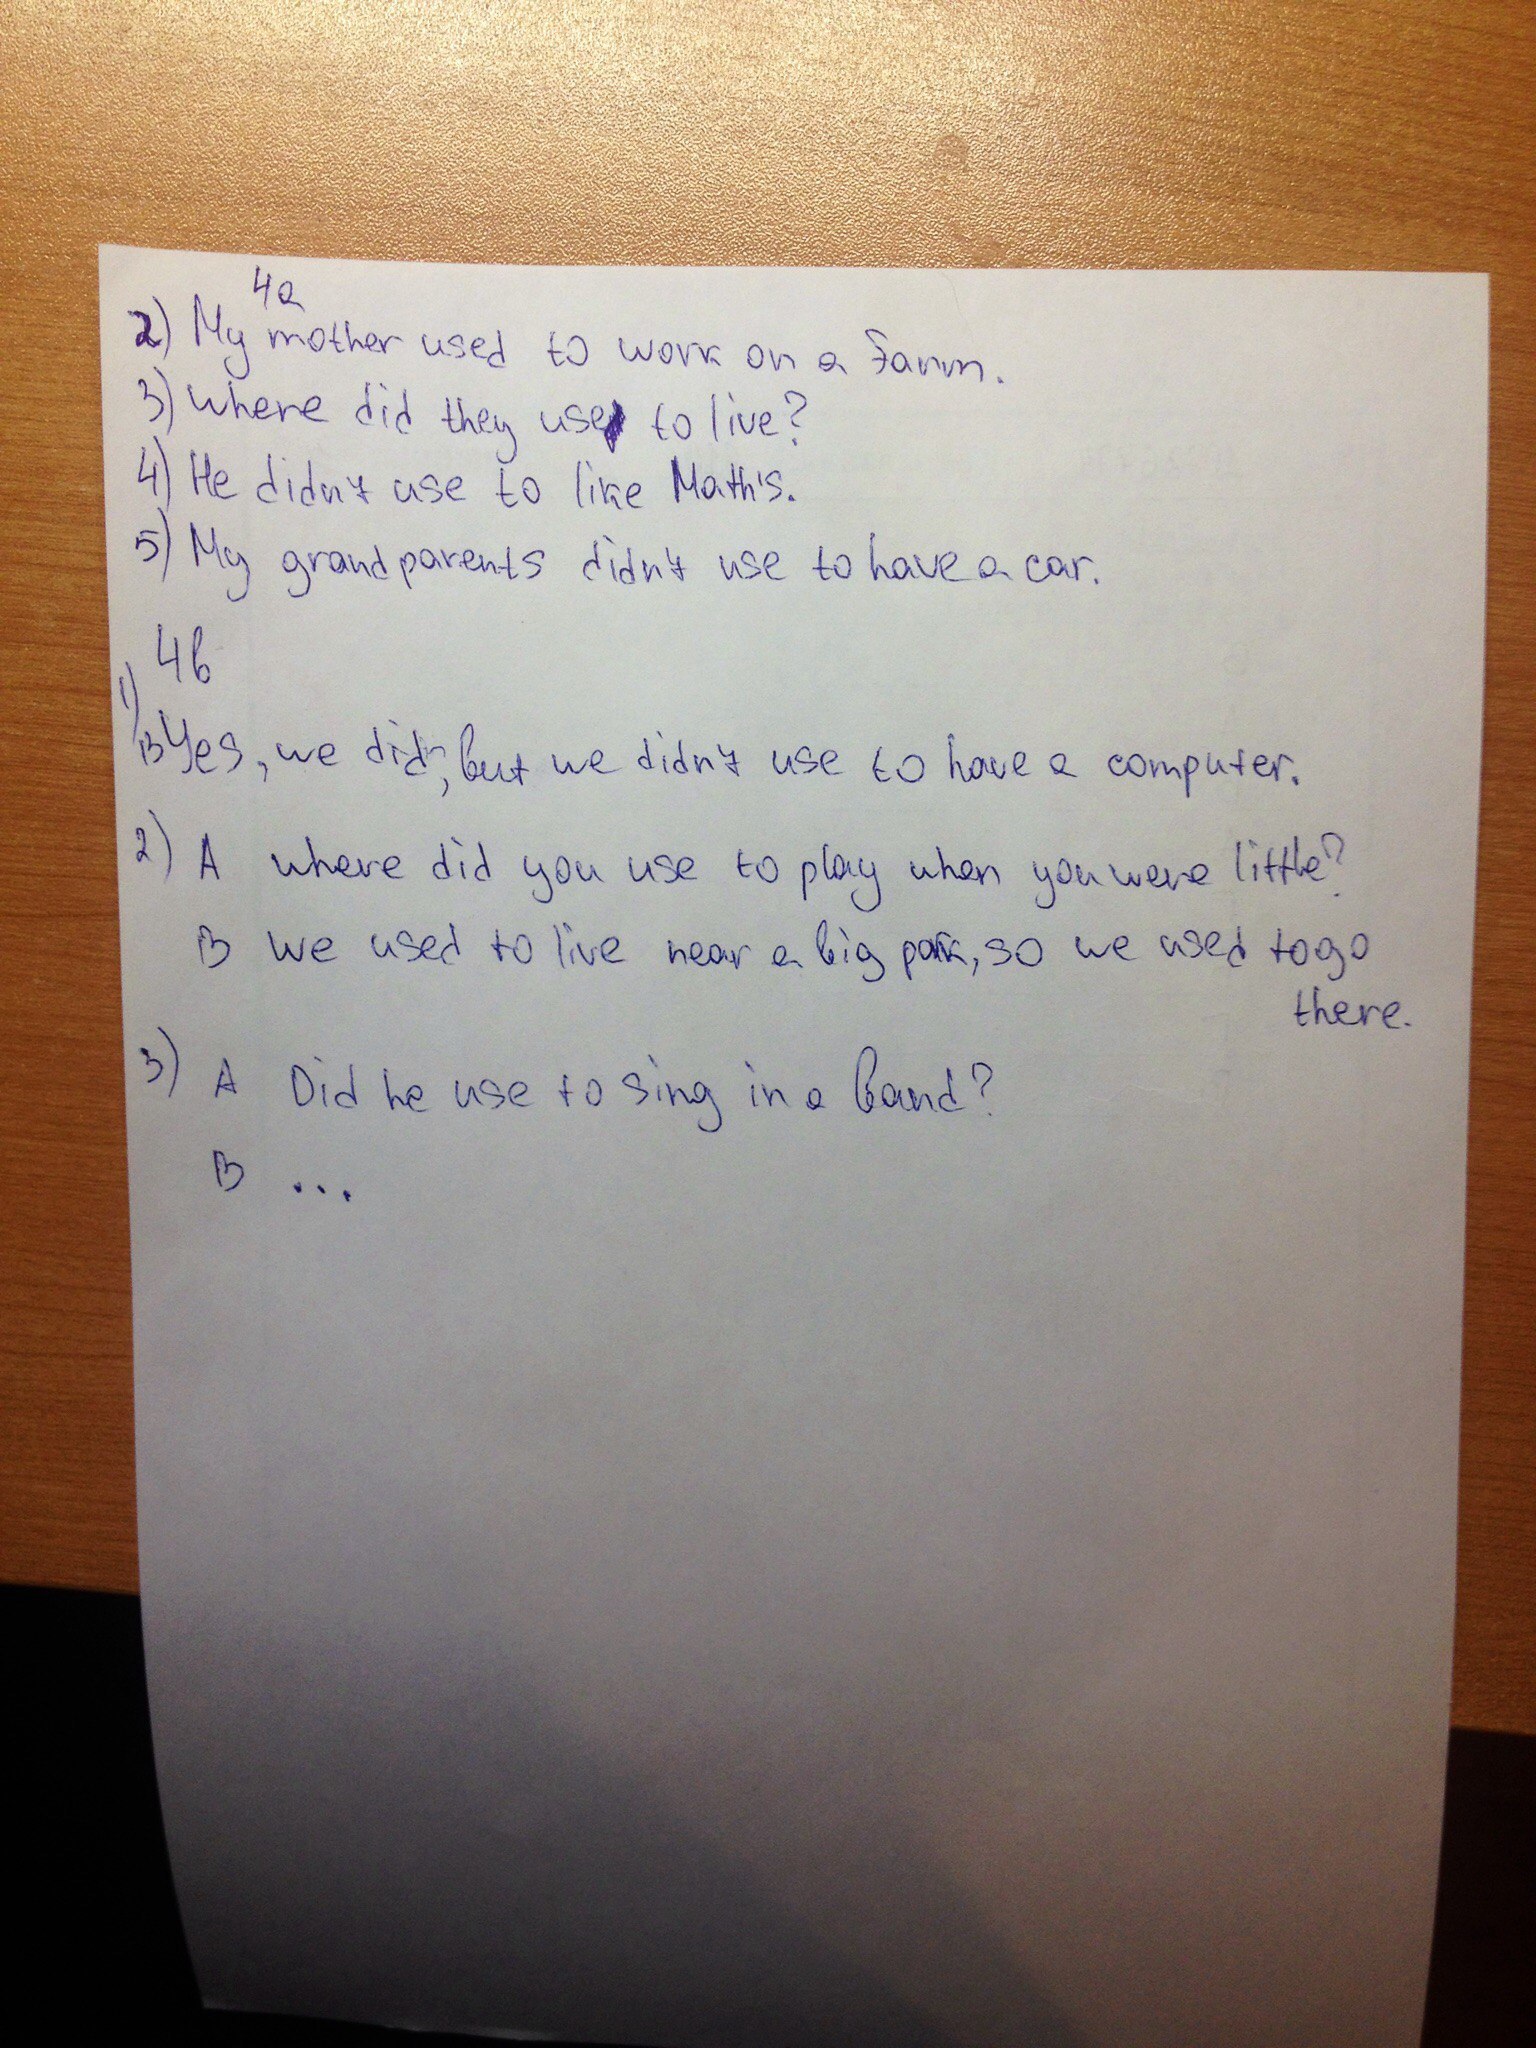 4a
2) My mother used to work on a farm.
3) where did they use to live?
4) He didn't use to like Math's.
5) My grandparents didn't use to have a car.
4b
1)
B Yes, we did, but we didn't use to have a computer.
2) A where did you use to play when you were little?
B we used to live near a big park, so we used to go
there.
3) A Did he use to sing in a band?
B ...